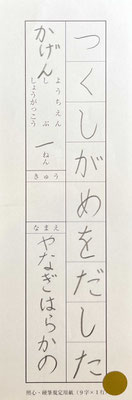 つくしがめをだした
ようちえん
しょうがっこう
かげん
しぶ
一ねん
きゅう
なまえ
やなぎはらかの
明心・硬筆検定用紙(9字×1行)